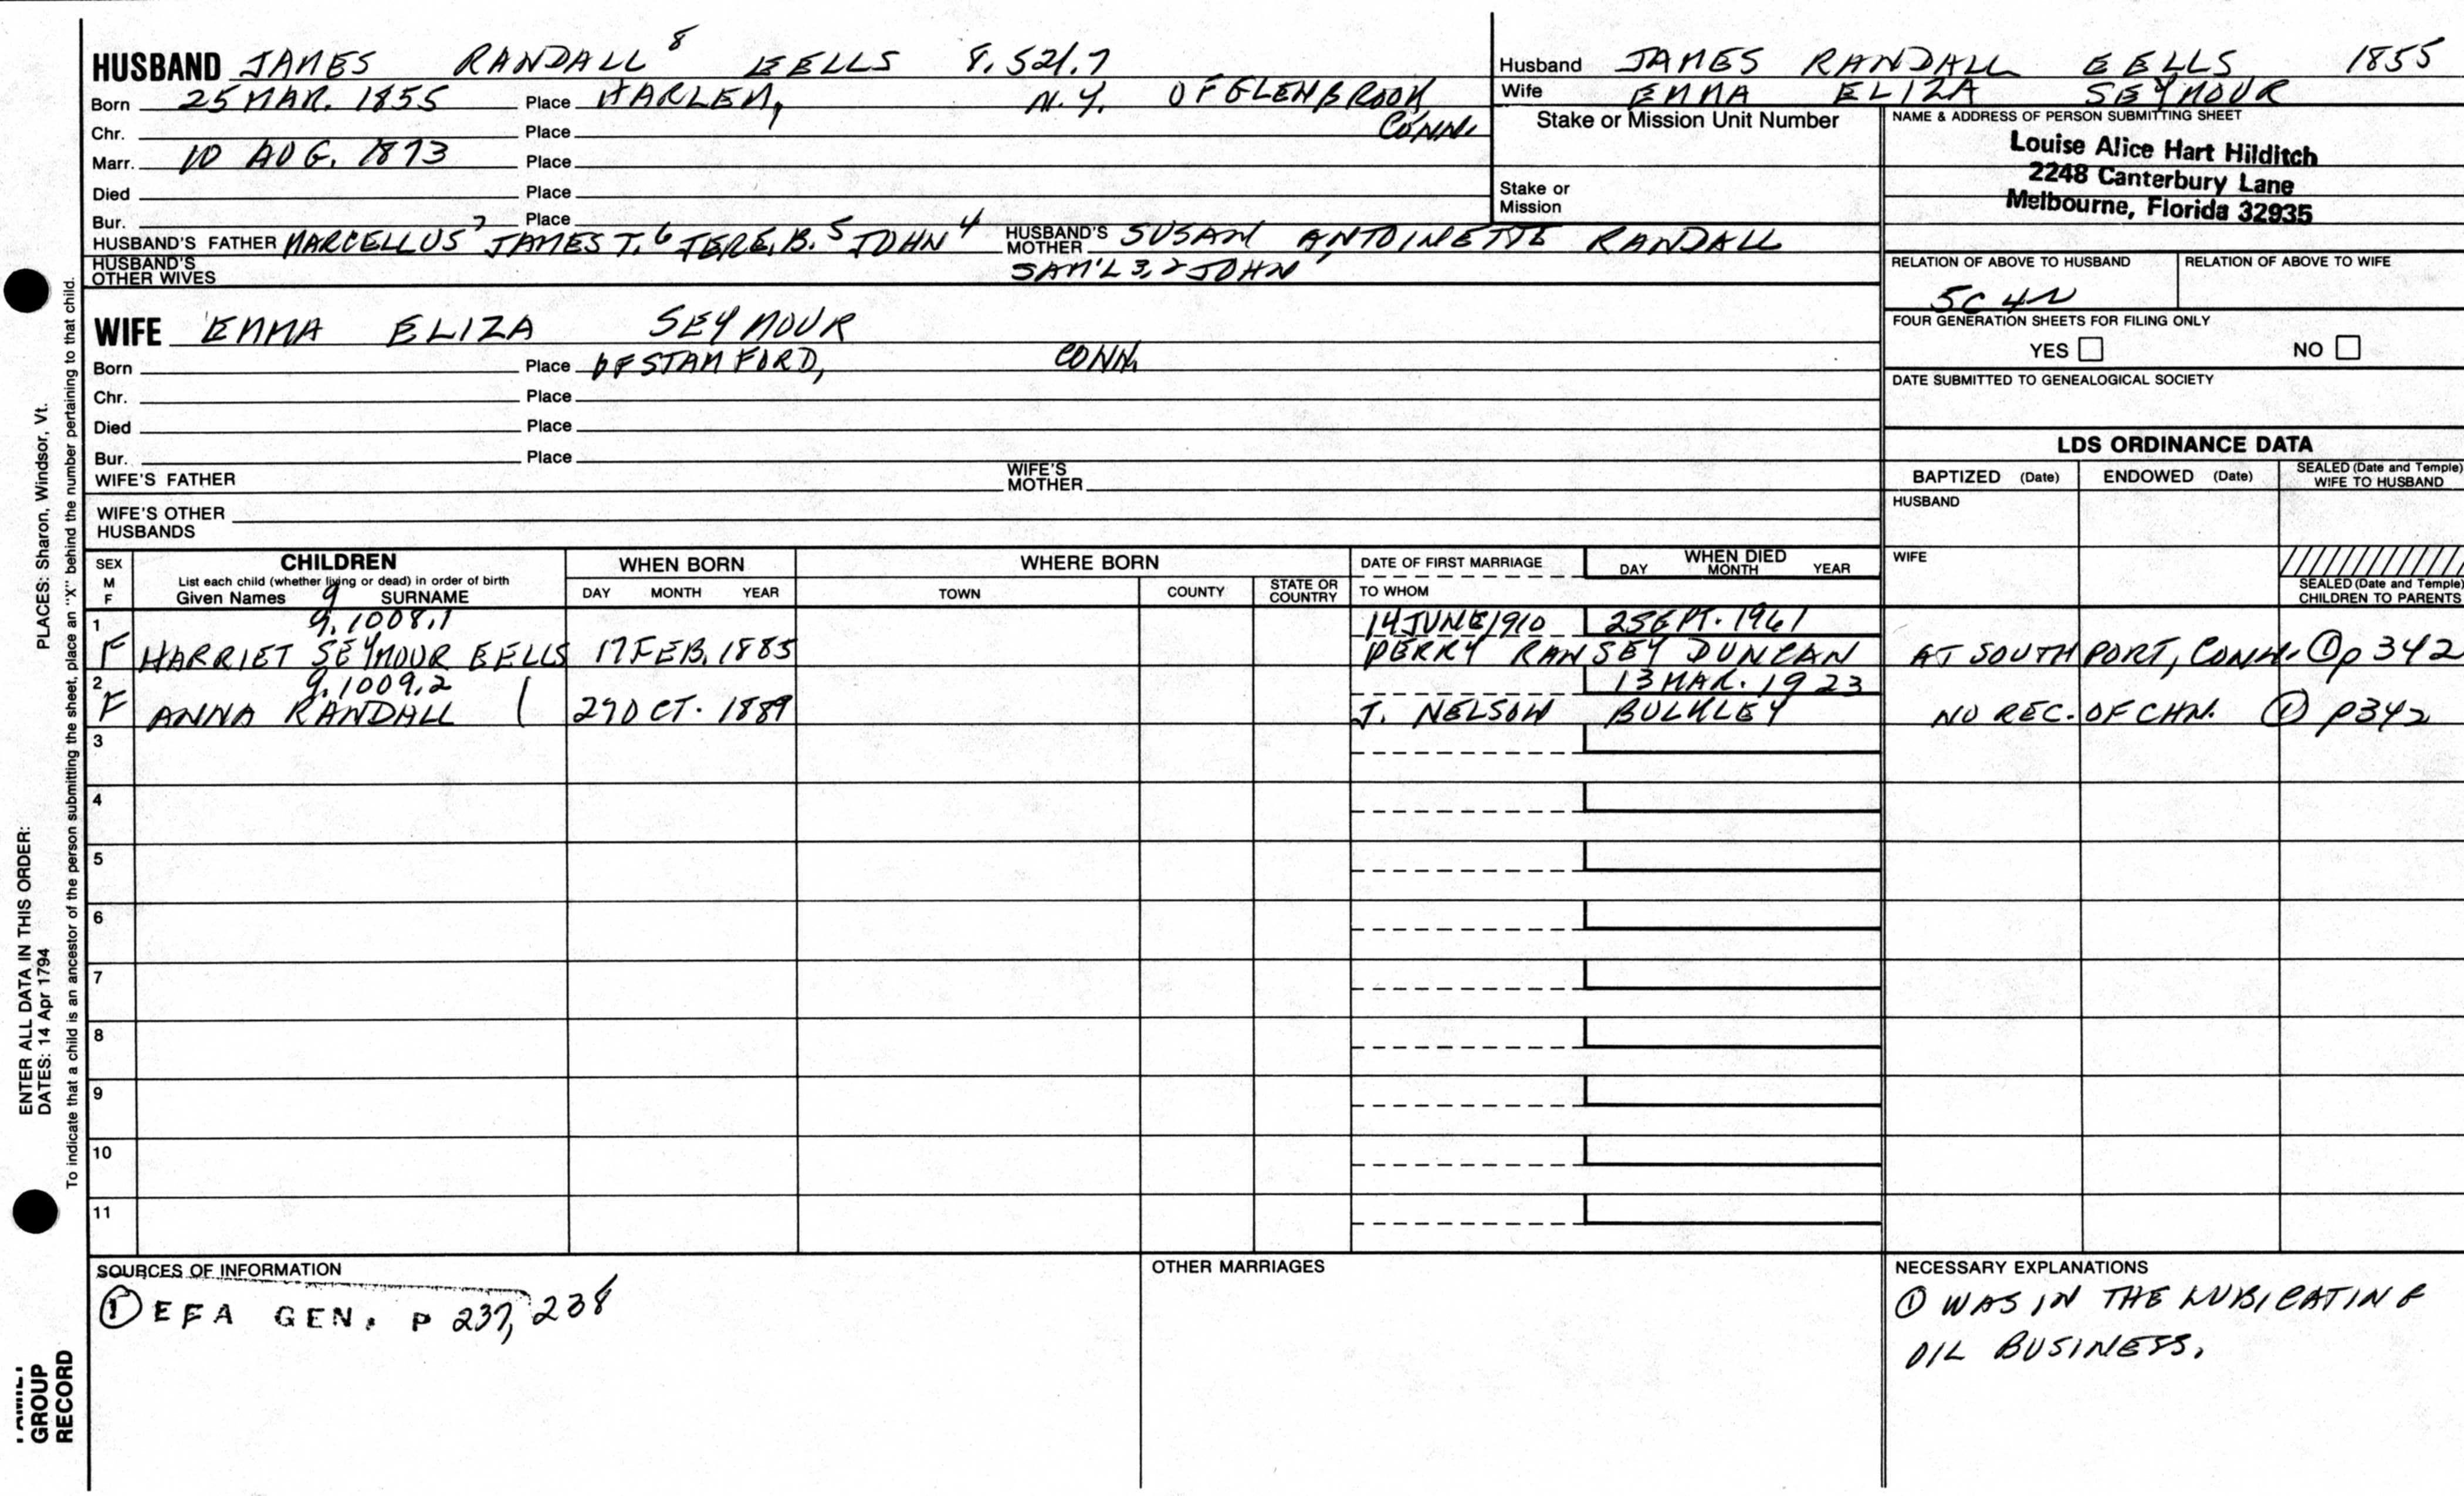 HUSBAND JAMES RANDALL 8 EELLS 8.521.7
Born 25 MAR. 1855 Place HARLEM, N.Y. OF GLENBROOK
Chr. Place CONN.
Marr. 10 AUG. 1873 Place
Died Place
Bur. Place
HUSBAND'S FATHER MARCELLUS 7 JAMES T. 6 JERE. B. 5 JOHN 4 HUSBAND'S MOTHER SUSAN ANTOINETTE RANDALL
HUSBAND'S OTHER WIVES SAM'L 3, 2 JOHN 1
Husband JAMES RANDALL EELLS 1855
Wife EMMA ELIZA SEYMOUR
Stake or Mission Unit Number
Stake or
Mission
NAME & ADDRESS OF PERSON SUBMITTING SHEET
Louise Alice Hart Hilditch
2248 Canterbury Lane
Melbourne, Florida 32935
RELATION OF ABOVE TO HUSBAND RELATION OF ABOVE TO WIFE
5C 4R
FOUR GENERATION SHEETS FOR FILING ONLY
YES NO
DATE SUBMITTED TO GENEALOGICAL SOCIETY
WIFE EMMA ELIZA SEYMOUR
Born Place OF STAMFORD, CONN.
Chr. Place
Died Place
Bur. Place
WIFE'S FATHER WIFE'S MOTHER
WIFE'S OTHER
HUSBANDS
LDS ORDINANCE DATA
BAPTIZED (Date) ENDOWED (Date) SEALED (Date and Temple) WIFE TO HUSBAND
HUSBAND
WIFE
SEALED (Date and Temple)
CHILDREN TO PARENTS
SEX M F CHILDREN WHEN BORN WHERE BORN DATE OF FIRST MARRIAGE WHEN DIED
List each child (whether living or dead) in order of birth DAY MONTH YEAR
Given Names 9 SURNAME DAY MONTH YEAR TOWN COUNTY STATE OR COUNTRY TO WHOM
1 9.1008.1 14 JUNE 1910 2 SEPT. 1961
F HARRIET SEYMOUR EELLS 17 FEB. 1885 PERRY RAMSEY DUNCAN AT SOUTHPORT, CONN. ① p 342
2 9.1009.2 13 MAR. 1923
F ANNA RANDALL ( 29 OCT. 1889 J. NELSON BULKLEY NO REC. OF CHN. ① P342
3
4
5
6
7
8
9
10
11
SOURCES OF INFORMATION
① EFA GEN. P 237, 238
OTHER MARRIAGES
NECESSARY EXPLANATIONS
① WAS IN THE LUBICATING
OIL BUSINESS.
ENTER ALL DATA IN THIS ORDER:
DATES: 14 Apr 1794 PLACES: Sharon, Windsor, Vt.
To indicate that a child is an ancestor of the person submitting the sheet, place an "X" behind the number pertaining to that child.
GROUP
RECORD